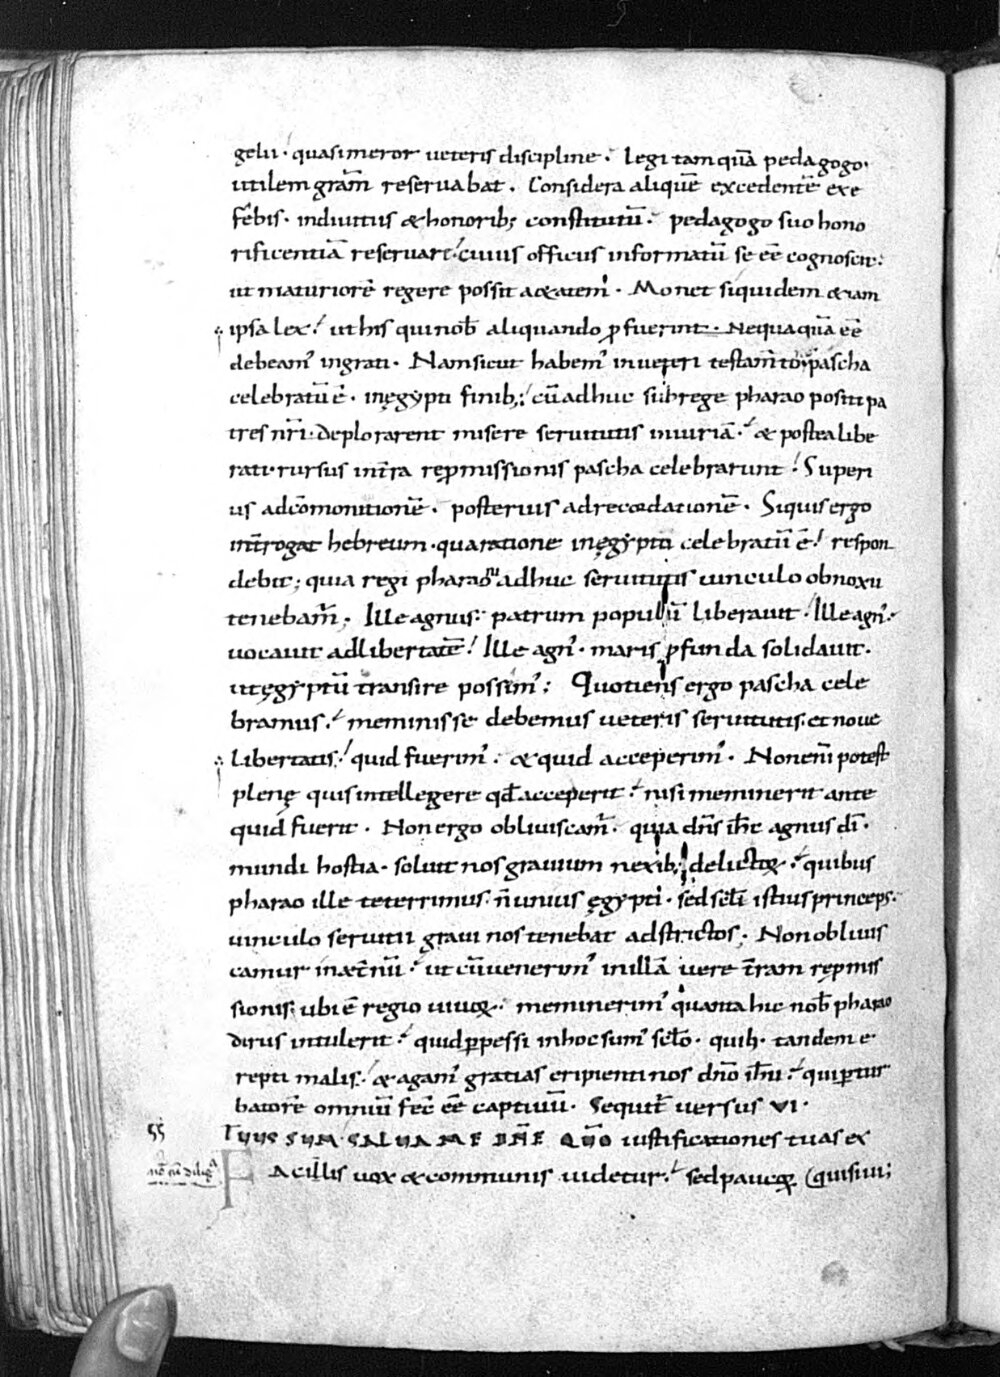 gelii · quasi meror ueteris discipline · legi tamquā pedagogo ·
utilem grām reseruabat . Considera aliquē excedentē exe
fēbis · indiuitiis & honorib; constitutū · pedagogo suo hono
rificentiā reseruare · cuius officiis informatū se eē cognoscit :
ut maturiorē regere possit aetatem̓ · Monet siquidem & iam
ipsa lex · ut his qui nob̄ aliquando ꝓfuerint · Nequaquā eē
debeam̓ ingrati · Nam sicut habem̓ in ueteri testam̄to · pascha
celebratū ē · inęgypti finib; · cū adhuc sub rege pharao positi pa
tres nr̄i · deplorarent misere seruitutis iniuriā · & postea libe
rati · rursus intra repmissionis pascha celebrarunt · Superi
us adcōmonitionē · posterius adrecordationē · Siquis ergo
interrogat hebreum · qua ratione inęgypto celebratū ē · respon
debit ; quia regi pharaoni adhuc seruitutis uinculo obnoxii
tenebam̓ ; Ille agnus · patrum populū liberauit · Ille agn̓ ·
uocauit adlibertatē · Ille agn̓ · maris ꝓfunda solidauit ·
ut ęgyptū transire possim̓ : Quotiens ergo pascha cele
bramus · meminisse debemus ueteris seruitutis · et noue
libertatis · quid fuerim̓ · & quid acceperim̓ · Non eni̅ potest
plenę quis intellegere qđ acceperit · nisi meminerit ante
quid fuerit · Non ergo obliuiscam̓ · quia dn̄s ih̄c agnus dī ·
mundi hostia · soluit nos grauium nexib; delictoꝝ · quibus
pharao ille teterrimus · n̄ unius ęgypti · sed scl̄i istius princeps ·
uinculo seruitii graui nos tenebat adstrictos · Non obliuis
camur in aet̄nū · ut cū uenerim̓ in illā uere t̄ram repmis
sionis · ubi ē regio uiuoꝝ · meminerim̓ quanta hic nob̄ pharao
dirus intulerit · quid ꝑpessi in hoc sum̓ scl̄o · quib · tandem e
repti malis · & agam̓ gratias eripienti nos dn̄o ih̄u · qui ꝑtur
batorē omniū fec̄ eē captiuū · Sequit̄ versus VI ·
TUUS SUM SALUA ME DN̄E QM̄ iustificationes tuas ex
FAcilis uox & communis uidetur · sed paucoꝝ (quisiui;